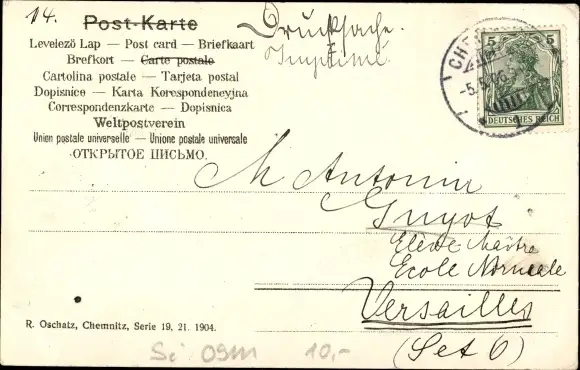 14.
Post-Karte
Drucksache.
Imprimé.
Levelezö Lap — Post card — Briefkaart
Brefkort — Carte postale
Cartolina postale — Tarjeta postal
Dopisnice — Karta Korespondencyjna
Correspondenzkarte — Dopisnica
Weltpostverein
Union postale universelle — Unione postale universale
ОТКРЫТОЕ ПИСЬМО.
5 5
DEUTSCHES REICH
M Antonin
Guyot
Elève Maître
Ecole Normale
Versailles
(Set O)
R. Oschatz, Chemnitz, Serie 19, 21. 1904.
10,-